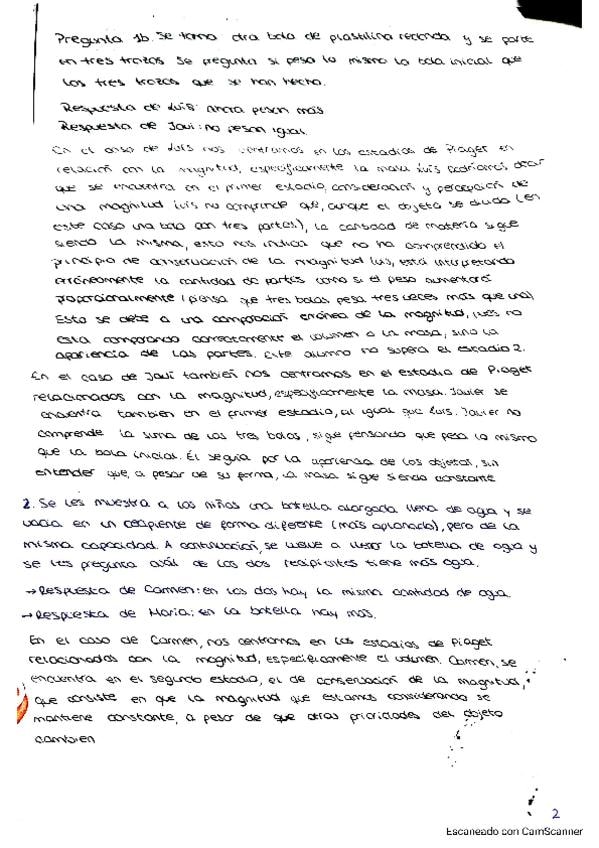 Pregunta 1b. Se toma otra bola de plastilina redonda y se parte
en tres trozos se pregunta si pesa lo mismo la bola inicial que
los tres trozos que se han hecho.
Respuesta de Luis: ahora pesan más
Respuesta de Javi: no pesan igual.
En el caso de Luis nos centramos en los estadios de Piaget en
relación con la magnitud, específicamente la masa Luis podríamos decir
que se encuentra en el primer estadio, consideración y percepción de
una magnitud Luis no comprende que, aunque el objeto se divida (en
este caso una bola con tres partes), la cantidad de materia sigue
siendo la misma, esto nos indica que no ha comprendido el
principio de conservación de la magnitud Luis, está interpretando
erróneamente la cantidad de partes como si el peso aumentara
proporcionalmente (piensa que tres bolas pesa tres veces más que una).
Esto se debe a una comparación errónea de la magnitud, pues no
está comparando correctamente el volumen o la masa, sino la
apariencia de las partes. Este alumno no supera el estadio 2.
En el caso de Javi también nos centramos en el estadio de Piaget
relacionados con la magnitud, específicamente la masa. Javier se
encuentra también en el primer estadio, al igual que Luis. Javier no
comprende la suma de las tres bolas, sigue pensando que pesa lo mismo
que la bola inicial. Él seguía por la apariencia de los objetos, sin
entender que, a pesar de su forma, la masa sigue siendo constante
2. Se les muestra a los niños una botella alargada llena de agua y se
vacía en un recipiente de forma diferente (más aplanado), pero de la
misma capacidad. A continuación, se vuelve a llenar la botella de agua y
se les pregunta cuál de los dos recipientes tiene más agua.
→ Respuesta de Carmen: en los dos hay la misma cantidad de agua.
→ Respuesta de María: en la botella hay más.
En el caso de Carmen, nos centramos en los estadios de Piaget
relacionados con la magnitud, específicamente el volumen. Carmen, se
encuentra en el segundo estadio, el de conservación de la magnitud,
que consiste en que la magnitud que estamos considerando se
mantiene constante, a pesar de que otras propiedades del objeto
cambien
2
Escaneado con CamScanner